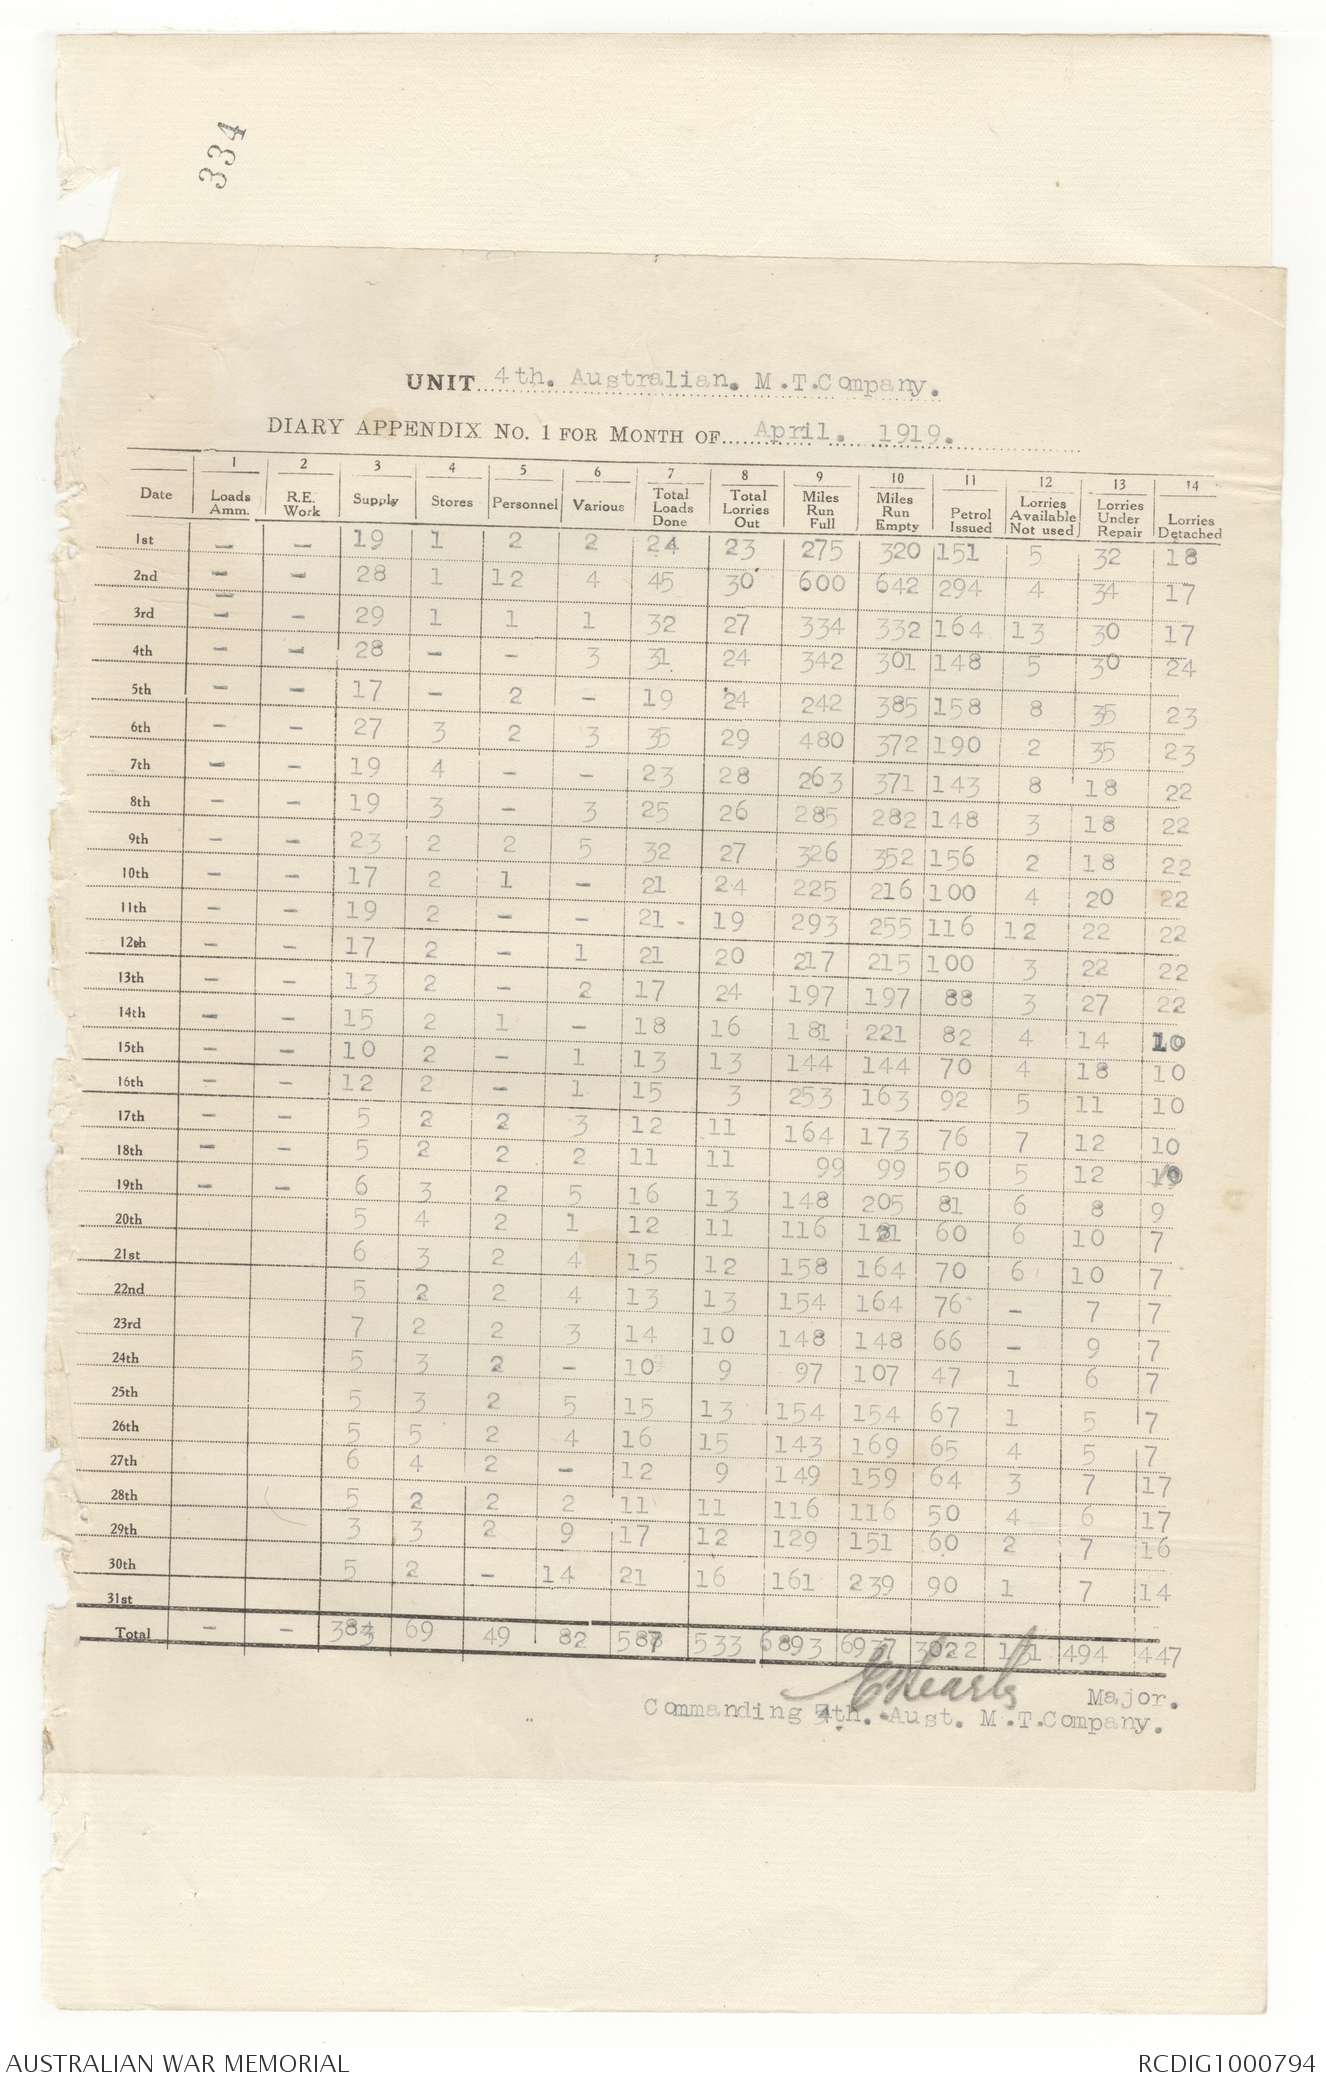 334
UNIT 4th. Australian. M.T.Company.
DIARY APPENDIX No. 1 FOR MONTH OF April. 1919.
1 2 3 4 5 6 7 8 9 10 11 12 13 14
Date Loads Amm. R.E. Work Supply Stores Personnel Various Total Loads Done Total Lorries Out Miles Run Full Miles Run Empty Petrol Issued Lorries Available Not used Lorries Under Repair Lorries Detached
1st - - 19 1 2 2 24 23 275 320 151 5 32 18
2nd - - 28 1 12 4 45 30 600 642 294 4 34 17
3rd - - 29 1 1 1 32 27 334 332 164 13 30 17
4th - - 28 - - 3 31 24 342 301 148 5 30 24
5th - - 17 - 2 - 19 24 242 385 158 8 35 23
6th - - 27 3 2 3 35 29 480 372 190 2 35 23
7th - - 19 4 - - 23 28 263 371 143 8 18 22
8th - - 19 3 - 3 25 26 285 282 148 3 18 22
9th - - 23 2 2 5 32 27 326 352 156 2 18 22
10th - - 17 2 1 - 21 24 225 216 100 4 20 22
11th - - 19 2 - - 21 19 293 255 116 12 22 22
12th - - 17 2 - 1 21 20 217 215 100 3 22 22
13th - - 13 2 - 2 17 24 197 197 88 3 27 22
14th - - 15 2 1 - 18 16 181 221 82 4 14 10
15th - - 10 2 - 1 13 13 144 144 70 4 18 10
16th - - 12 2 - 1 15 3 253 163 92 5 11 10
17th - - 5 2 2 3 12 11 164 173 76 7 12 10
18th - - 5 2 2 2 11 11 99 99 50 5 12 10
19th - - 6 3 2 5 16 13 148 205 81 6 8 9
20th 5 4 2 1 12 11 116 121 60 6 10 7
21st 6 3 2 4 15 12 158 164 70 6 10 7
22nd 5 2 2 4 13 13 154 164 76 - 7 7
23rd 7 2 2 3 14 10 148 148 66 - 9 7
24th 5 3 2 - 10 9 97 107 47 1 6 7
25th 5 3 2 5 15 13 154 154 67 1 5 7
26th 5 5 2 4 16 15 143 169 65 4 5 7
27th 6 4 2 - 12 9 149 159 64 3 7 17
28th 5 2 2 2 11 11 116 116 50 4 6 17
29th 3 3 2 9 17 12 129 151 60 2 7 16
30th 5 2 - 14 21 16 161 239 90 1 7 14
31st
Total - - 69 49 82 533 6893 6937 3022 494 447
Major.
Commanding 4th. Aust. M.T.Company.
AUSTRALIAN WAR MEMORIAL RCDIG1000794